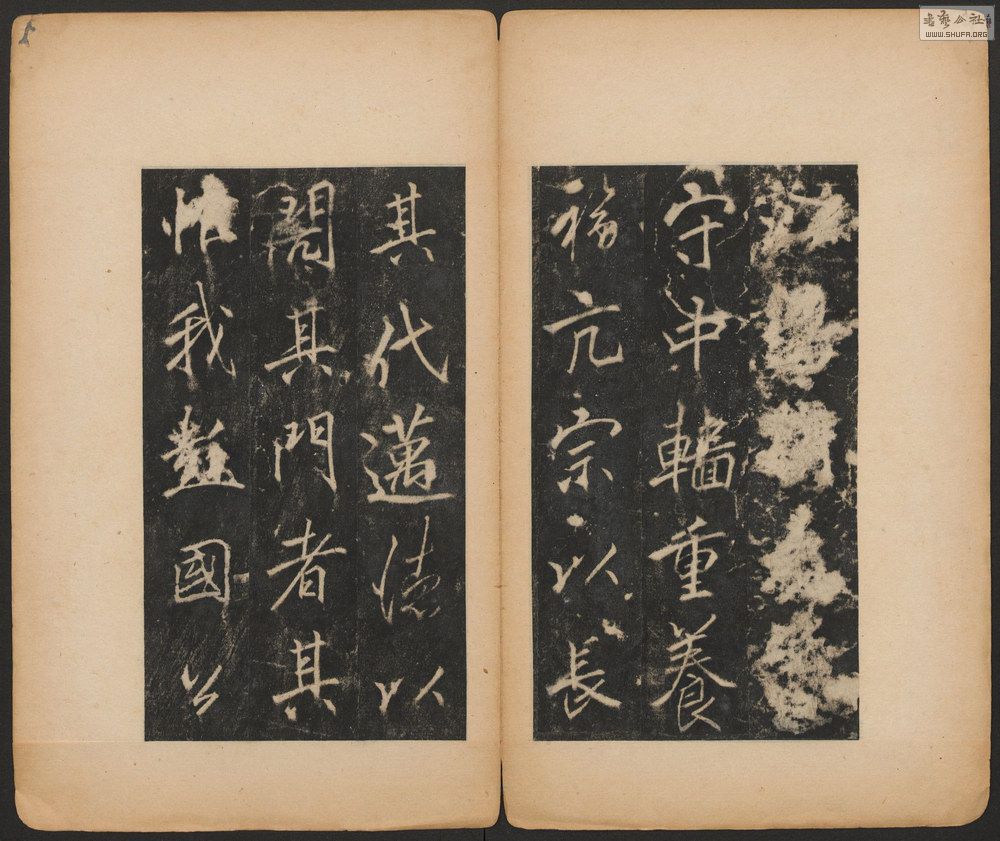 守中轓重養
福亢宗以長
其代邁德以
閎其門者其
惟我彭國公
書藝公社
WWW.SHUFA.ORG